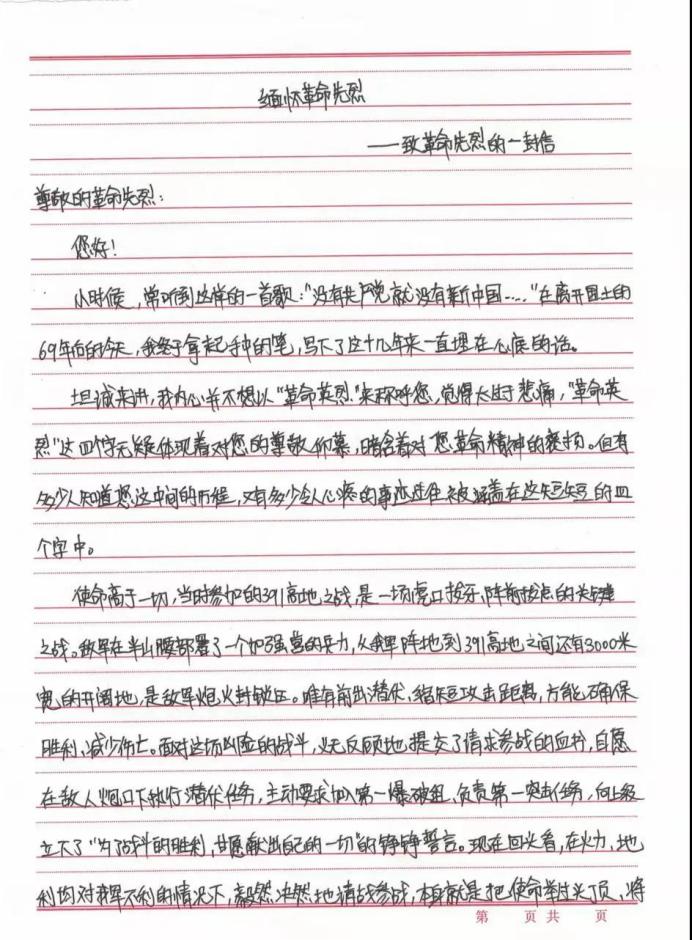 缅怀革命先烈
——致革命先烈的一封信
尊敬的革命先烈：
您好！
小时候，常听到这样的一首歌：“没有共产党就没有新中国……”在离开国土的
69年后的今天，我终于拿起手中的笔，写下了这十几年来一直埋在心底的话。
坦诚来讲，我内心并不想以“革命英烈”来称呼您，觉得太过于悲痛，“革命英
烈”这四个字无疑体现着对您的尊敬仰慕，暗含着对您革命精神的褒扬。但有
多少人知道您这中间的历程，又有多少令人心疼的事迹过往被涵盖在这短短的四
个字中。
使命高于一切，当时参加的391高地之战，是一场虎口拔牙、阵前拔点的关键
之战。敌军在半山腰部署了一个加强营的兵力，从我军阵地到391高地之间还有3000米
宽的开阔地，是敌军炮火封锁区。唯有前出潜伏、缩短攻击距离，方能确保
胜利、减少伤亡。面对这场凶险的战斗，义无反顾地提交了请求参战的血书，自愿
在敌人炮口下执行潜伏任务，主动要求加入第一爆破组、负责第一突击任务，向上级
立下了“为了战斗的胜利，甘愿献出自己的一切”的铮铮誓言。现在回头看，在火力、地
利均对我军不利的情况下，毅然决然地请战参战，本身就是把使命举过头顶、将
第 页 共 页